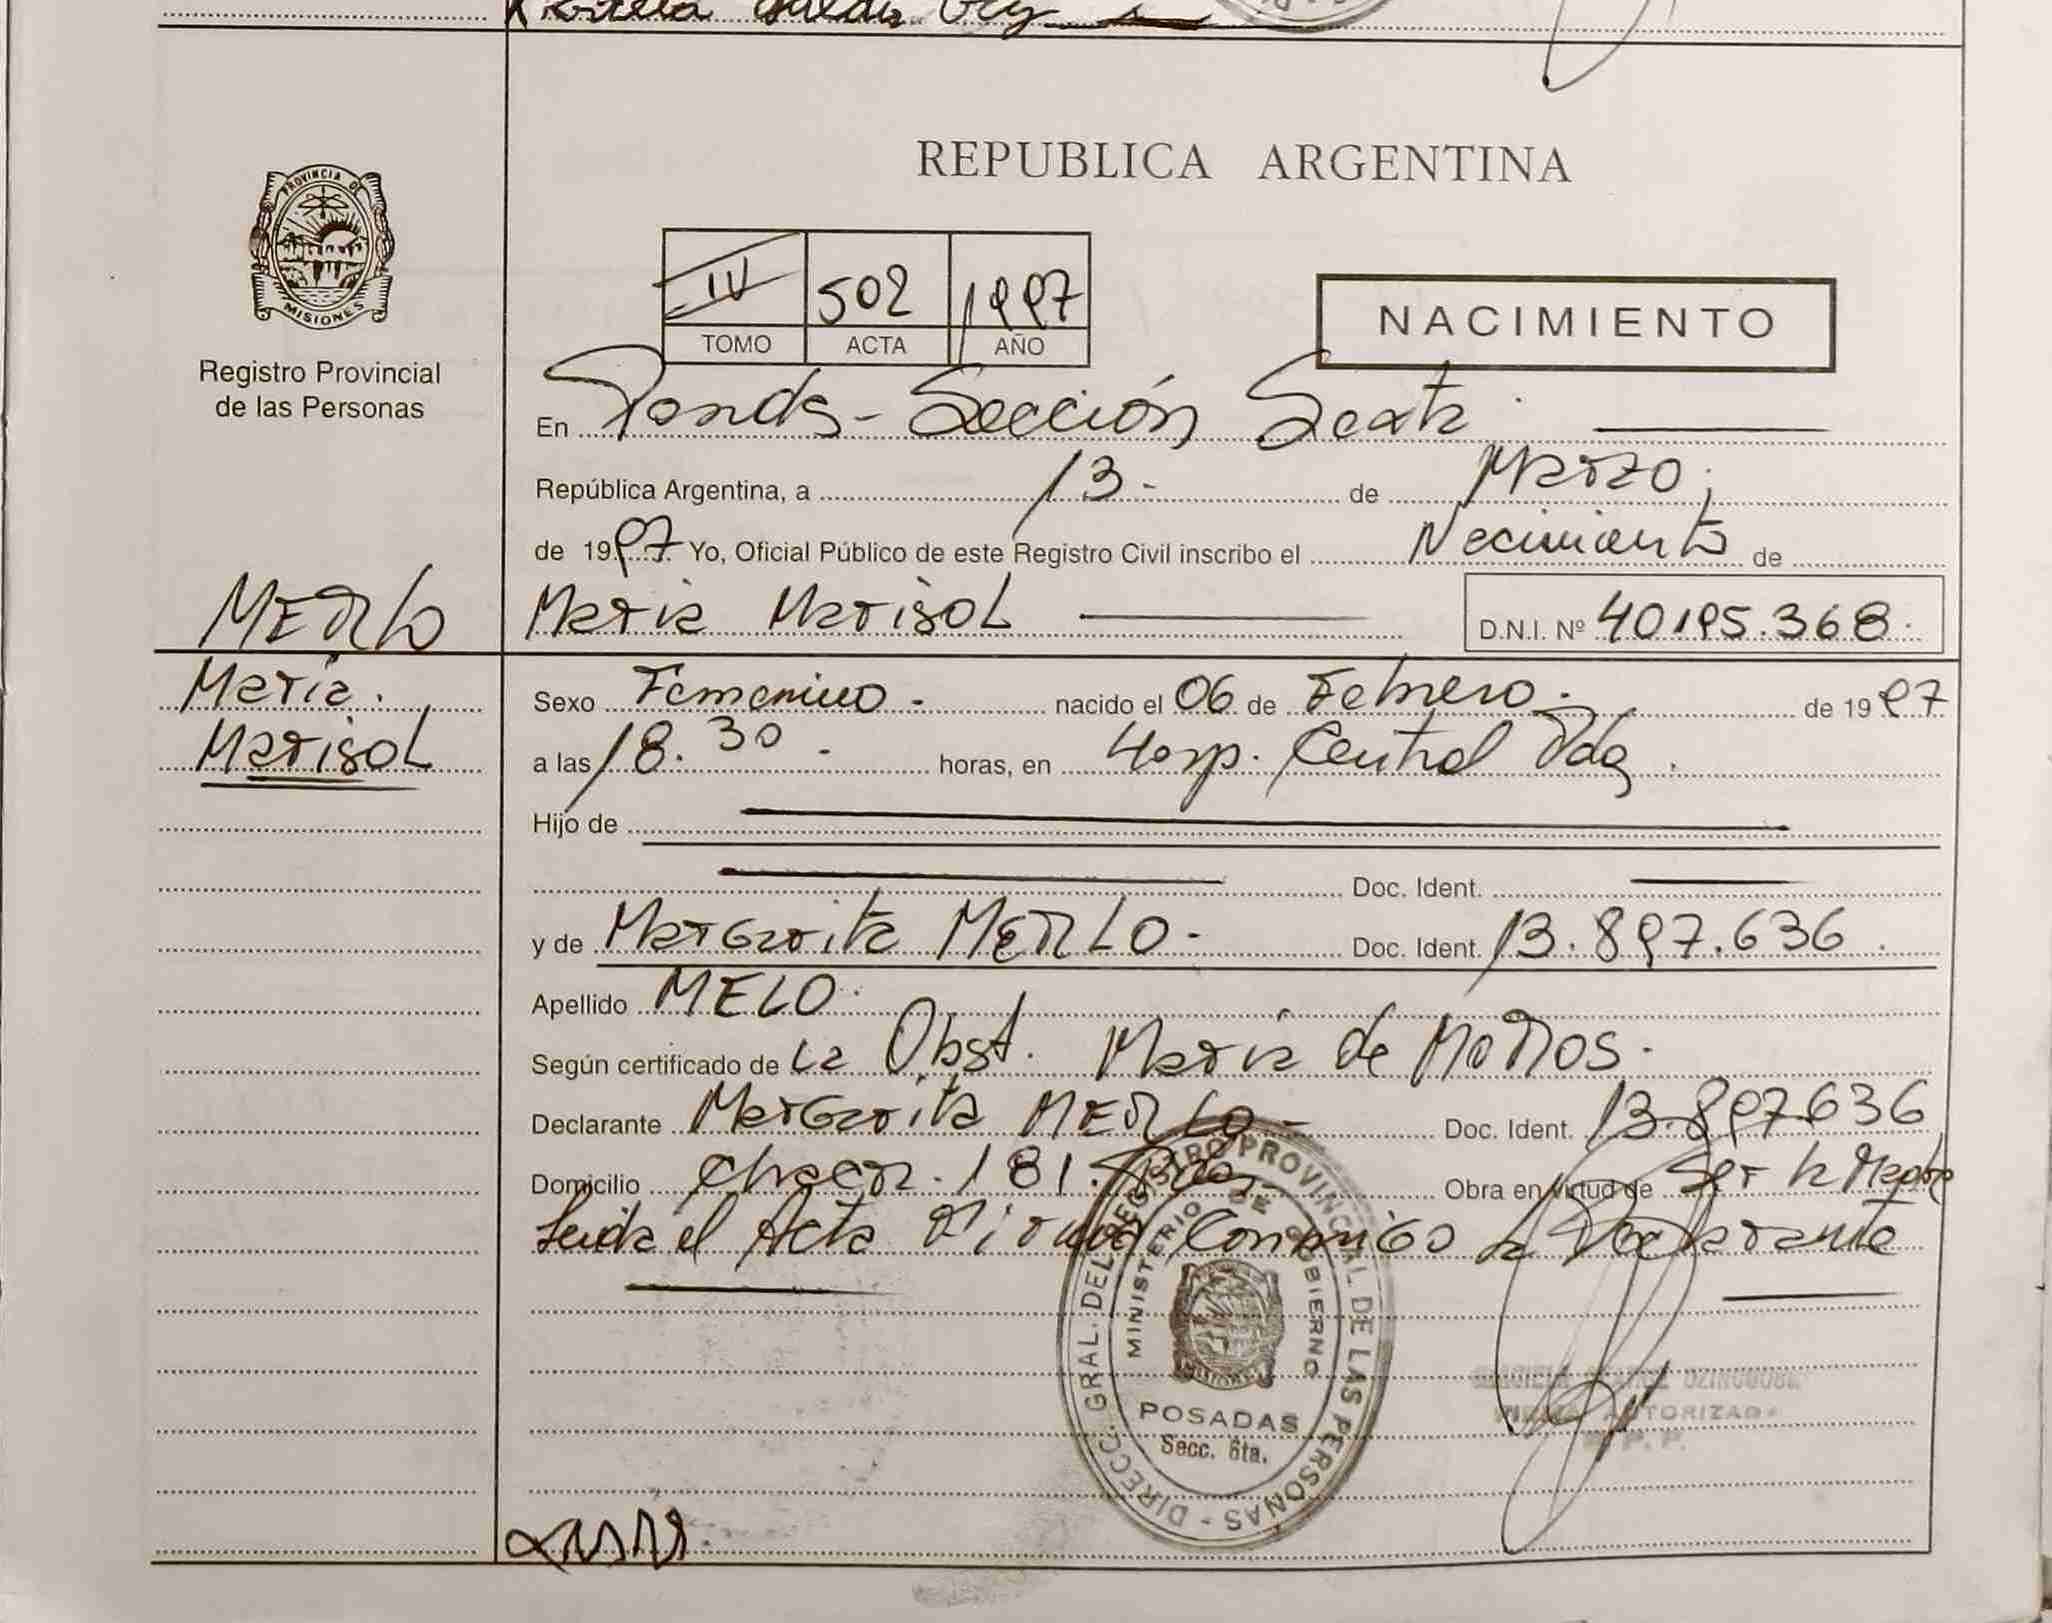 REPUBLICA ARGENTINA
PROVINCIA DE
MISIONES
Registro Provincial
de las Personas
IV 502 1997
TOMO ACTA AÑO
NACIMIENTO
En Posadas - Sección Sexta
República Argentina, a 13 - de Marzo
de 1997 Yo, Oficial Público de este Registro Civil inscribo el Nacimiento de
MERLO María Marisol D.N.I. Nº 40195.368
María
Marisol
Sexo Femenino - nacido el 06 de Febrero - de 1997
a las 18.30 horas, en Hosp. Central Pdas
Hijo de
Doc. Ident.
y de Margarita MERLO - Doc. Ident. 13.897.636
Apellido MELO
Según certificado de La Obst. María de
Declarante Margarita MERLO - Doc. Ident. 13.897636
Domicilio 181 Obra en virtud de Ser la Madre
Leida el Acta Firma Conmigo la Declarante
DIRECC. GRAL. DEL REGISTRO PROVINCIAL DE LAS PERSONAS -
MINISTERIO DE GOBIERNO
MISIONES
POSADAS
Secc. 6ta.
AUTORIZADA